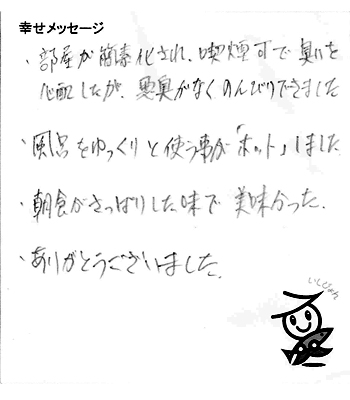 幸せメッセージ
・部屋が簡素化され、喫煙可で臭いを
心配したが、悪臭がなくのんびりできました
・風呂をゆっくりと使う事が「ホット」しました
・朝食がさっぱりした味で美味かった。
・ありがとうございました。